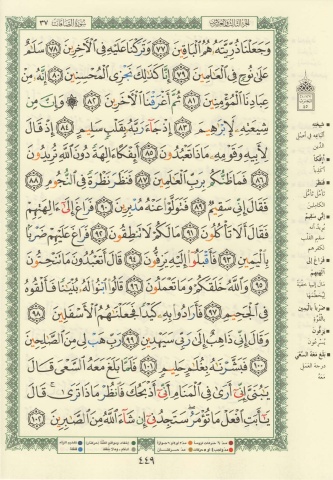 الجزء الثالث والعشرون
سورة الصافات ٣٧
وَجَعَلْنَا ذُرِّيَّتَهُۥ هُمُ ٱلْبَاقِينَ ٧٧ وَتَرَكْنَا عَلَيْهِ فِى ٱلْءَاخِرِينَ ٧٨ سَلَٰمٌ
عَلَىٰ نُوحٍ فِى ٱلْعَٰلَمِينَ ٧٩ إِنَّا كَذَٰلِكَ نَجْزِى ٱلْمُحْسِنِينَ ٨٠ إِنَّهُۥ مِنْ
عِبَادِنَا ٱلْمُؤْمِنِينَ ٨١ ثُمَّ أَغْرَقْنَا ٱلْءَاخَرِينَ ٨٢ ۞ وَإِنَّ مِن
شِيعَتِهِۦ لَإِبْرَٰهِيمَ ٨٣ إِذْ جَآءَ رَبَّهُۥ بِقَلْبٍ سَلِيمٍ ٨٤ إِذْ قَالَ
لِأَبِيهِ وَقَوْمِهِۦ مَاذَا تَعْبُدُونَ ٨٥ أَئِفْكًا ءَالِهَةً دُونَ ٱللَّهِ تُرِيدُونَ
٨٦ فَمَا ظَنُّكُم بِرَبِّ ٱلْعَٰلَمِينَ ٨٧ فَنَظَرَ نَظْرَةً فِى ٱلنُّجُومِ ٨٨
فَقَالَ إِنِّى سَقِيمٌ ٨٩ فَتَوَلَّوْا۟ عَنْهُ مُدْبِرِينَ ٩٠ فَرَاغَ إِلَىٰٓ ءَالِهَتِهِمْ
فَقَالَ أَلَا تَأْكُلُونَ ٩١ مَا لَكُمْ لَا تَنطِقُونَ ٩٢ فَرَاغَ عَلَيْهِمْ ضَرْبًۢا
بِٱلْيَمِينِ ٩٣ فَأَقْبَلُوٓا۟ إِلَيْهِ يَزِفُّونَ ٩٤ قَالَ أَتَعْبُدُونَ مَا تَنْحِتُونَ
٩٥ وَٱللَّهُ خَلَقَكُمْ وَمَا تَعْمَلُونَ ٩٦ قَالُوا۟ ٱبْنُوا۟ لَهُۥ بُنْيَٰنًا فَأَلْقُوهُ
فِى ٱلْجَحِيمِ ٩٧ فَأَرَادُوا۟ بِهِۦ كَيْدًا فَجَعَلْنَٰهُمُ ٱلْأَسْفَلِينَ ٩٨
وَقَالَ إِنِّى ذَاهِبٌ إِلَىٰ رَبِّى سَيَهْدِينِ ٩٩ رَبِّ هَبْ لِى مِنَ ٱلصَّٰلِحِينَ
١٠٠ فَبَشَّرْنَٰهُ بِغُلَٰمٍ حَلِيمٍ ١٠١ فَلَمَّا بَلَغَ مَعَهُ ٱلسَّعْىَ قَالَ
يَٰبُنَىَّ إِنِّىٓ أَرَىٰ فِى ٱلْمَنَامِ أَنِّىٓ أَذْبَحُكَ فَٱنظُرْ مَاذَا تَرَىٰ ۚ قَالَ
يَٰٓأَبَتِ ٱفْعَلْ مَا تُؤْمَرُ ۖ سَتَجِدُنِىٓ إِن شَآءَ ٱللَّهُ مِنَ ٱلصَّٰبِرِينَ ١٠٢
شيعته
أتباعه في أصل
الدين
أئفكا
أكذبا
فنظر
تأمل
إني سقيم
ضربا باليمين
يزفون
يسرعون
بلغ معه السعي
درجة العمل
٤٤٩